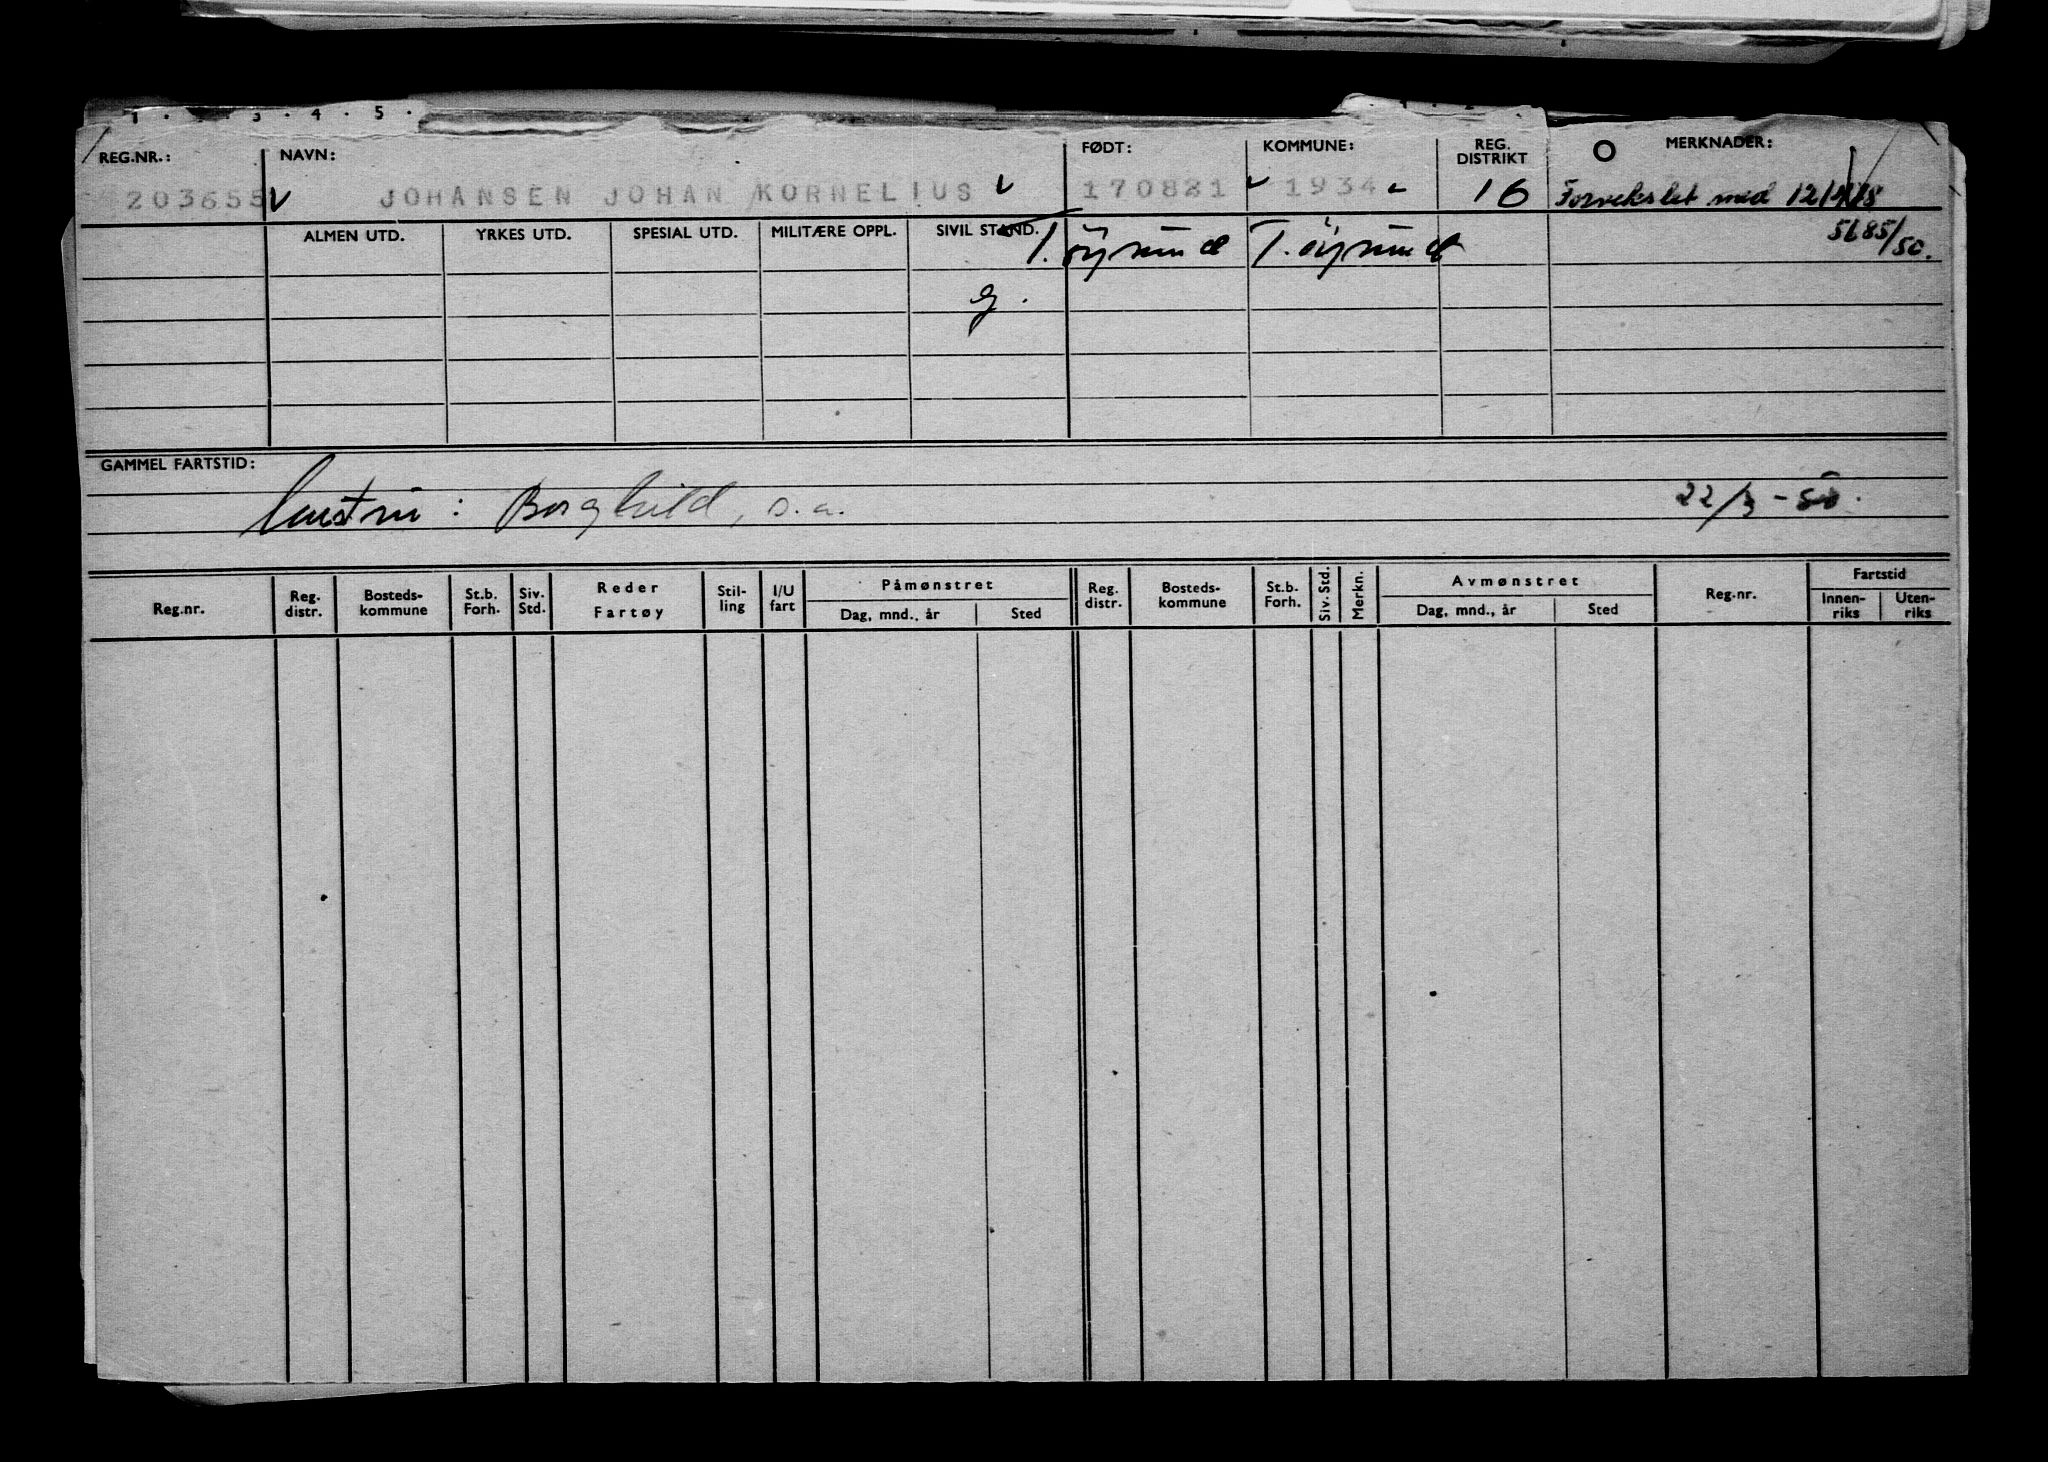 3 . 4 . 5 .
REG.NR.: NAVN: FØDT: KOMMUNE: REG. DISTRIKT MERKNADER:
203655 JOHANSEN JOHAN KORNELIUS 170821 1934 16 Forvekslet med
5685/50.
ALMEN UTD. YRKES UTD. SPESIAL UTD. MILITÆRE OPPL. SIVIL STAND.
T. öysund T. öysund
g.
GAMMEL FARTSTID:
hustru: Borghild, s.a. 22/3-50.
Reg.nr. Reg. distr. Bosteds- kommune St.b. Forh. Siv. Std. Reder Fartøy Stil- ling I/U fart Påmønstret Dag, mnd., år Sted Reg. distr. Bosteds- kommune St.b. Forh. Siv. Std. Merkn. Avmønstret Dag, mnd., år Sted Reg.nr. Fartstid Innen- riks Uten- riks